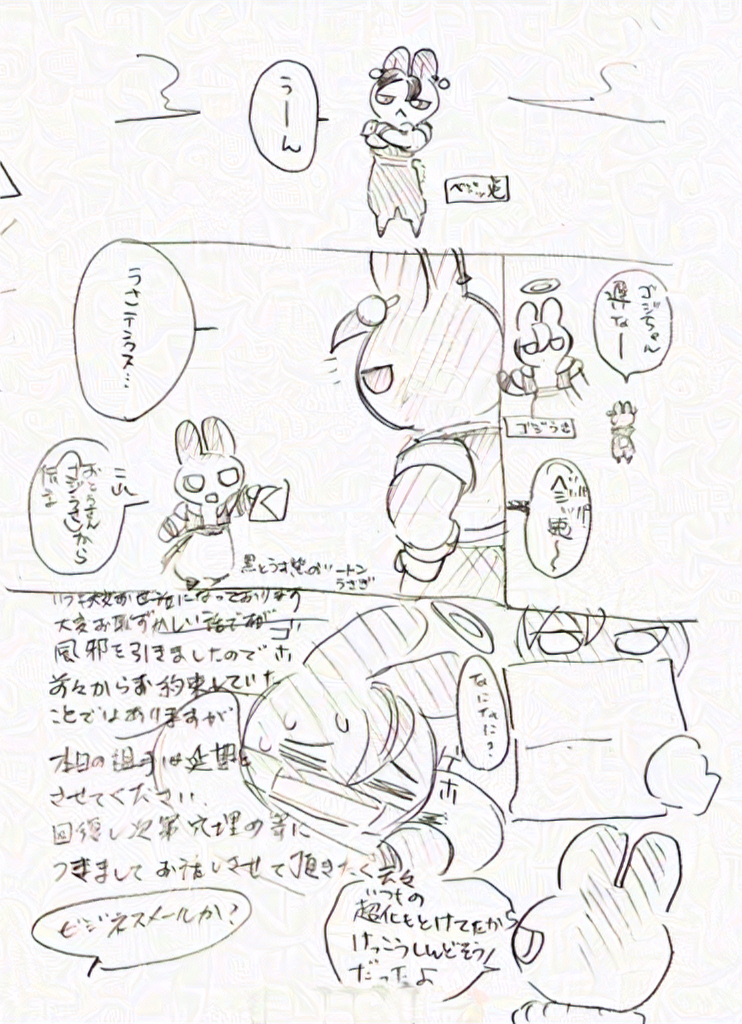 うーん
ベジッ兎
ゴジちゃん
遅いなー
ゴジうさ
ベジッ兎〜
うさテラス…
おとうさん
ゴジうさから
伝言
黒とうす紫のツートン
うさぎ
いつも大変お世話になっております
大変お恥ずかしい話ですが
風邪を引きましたので
前々からお約束していた
ことではありますが
本日の組手は延期と
させてください.
回復し次第穴埋の等に
つきましてお話しさせて頂きたく云々
ゴホ
ゲホ
なになに?
ビジネスメールか?
いつもの
超化もとけてたから
けっこうしんどそう
だったよ